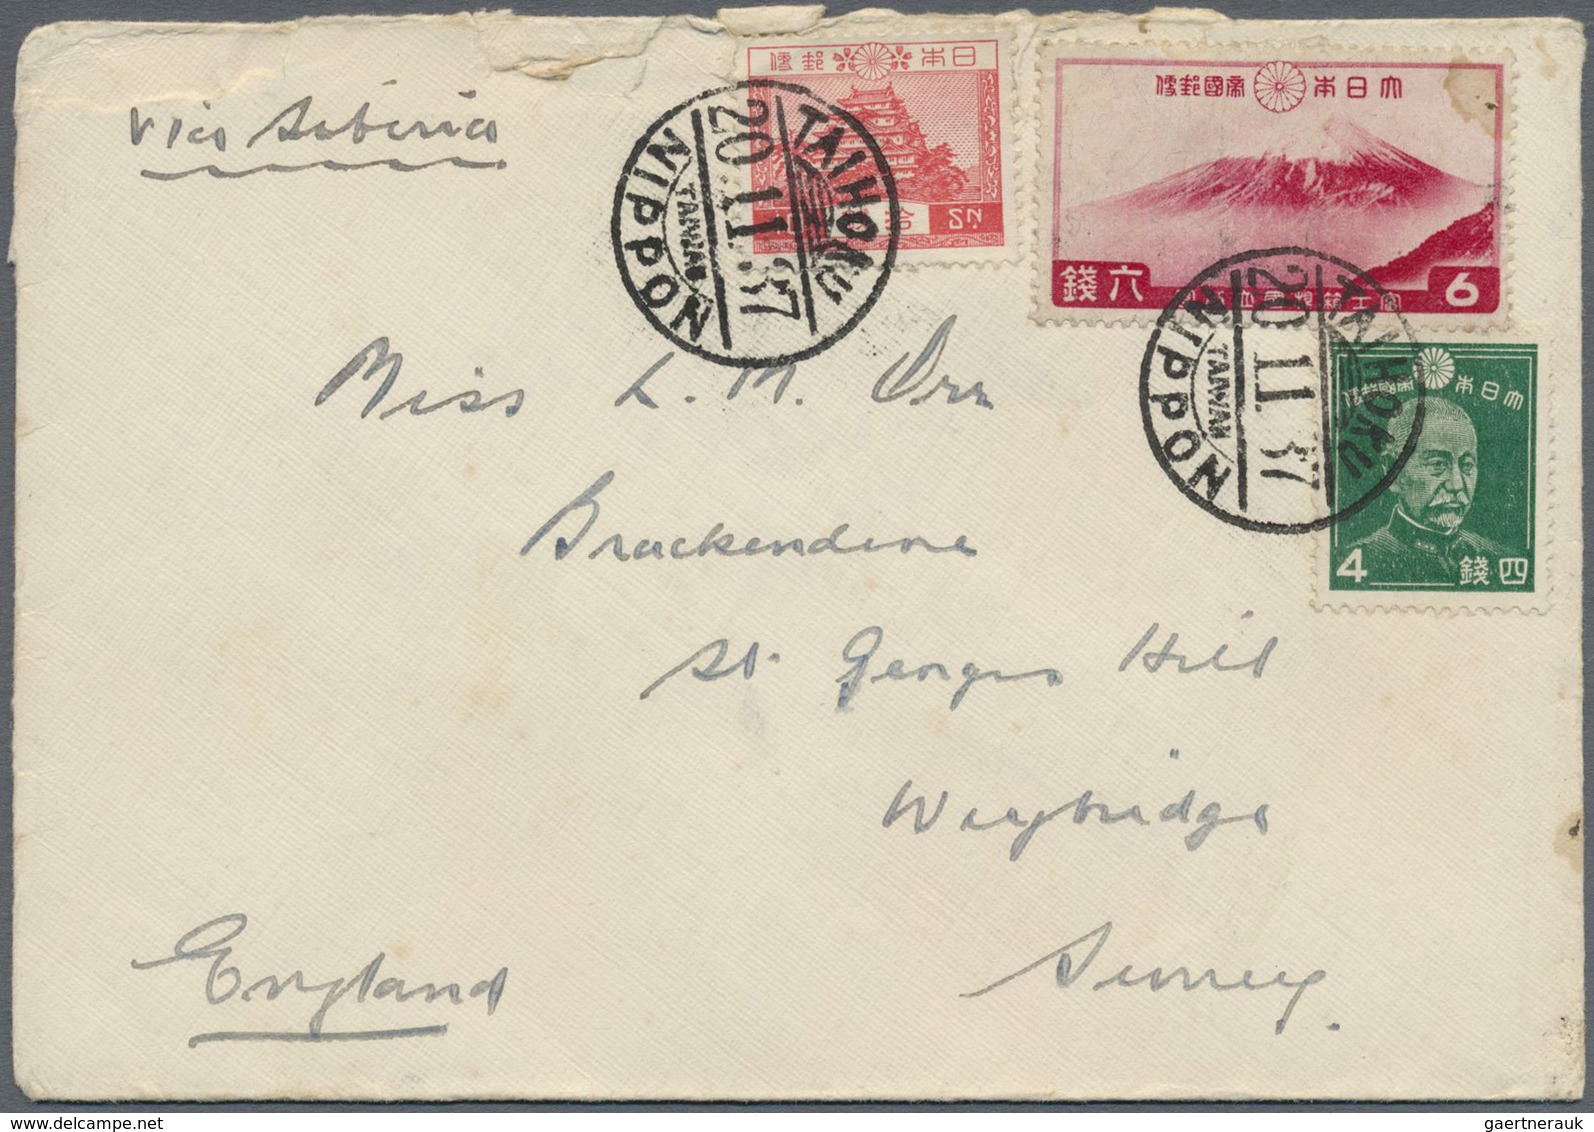 via Siberia
便郵 本日
拾 錢
TAIHOKU
20.11.37
TAIWAN
NIPPON
便郵國帝 本日大
錢六
6
TAIHOKU
20.11.37
TAIWAN
NIPPON
便郵國帝 本日大
4 錢四
Miss L. M. Orr
Brackendene
St. Georges Hill
Weybridge
Surrey.
England
gaertnerauk / delcampe.net